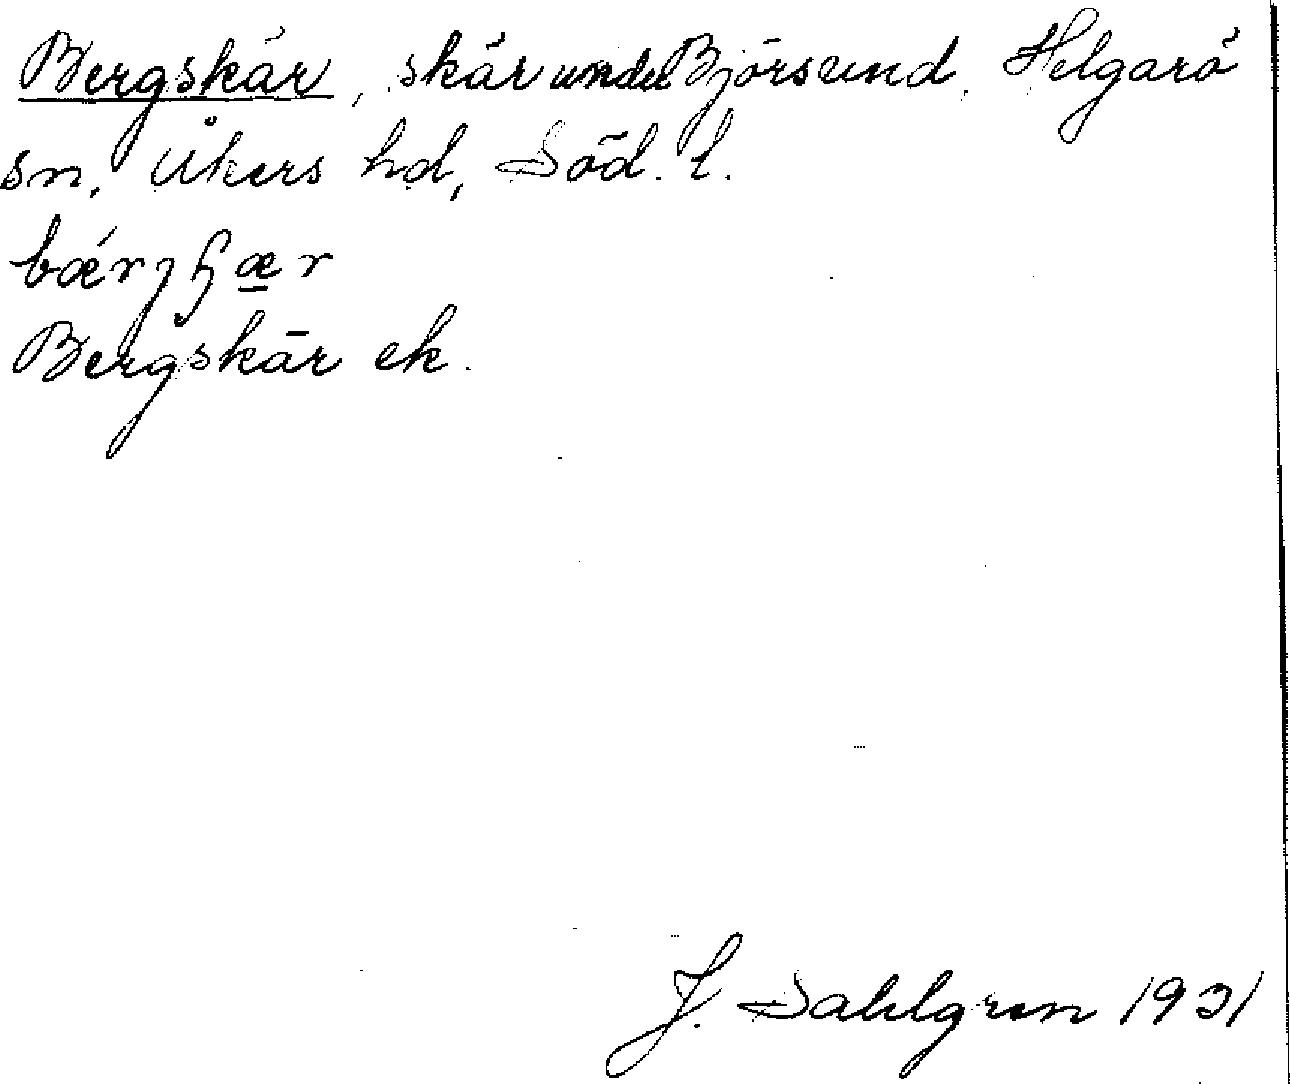 Bergskär, skär under Björsund, Helgarö
sn, Åkers hd, Söd. l.
Bergskär ek.
J. Dahlgren 1931